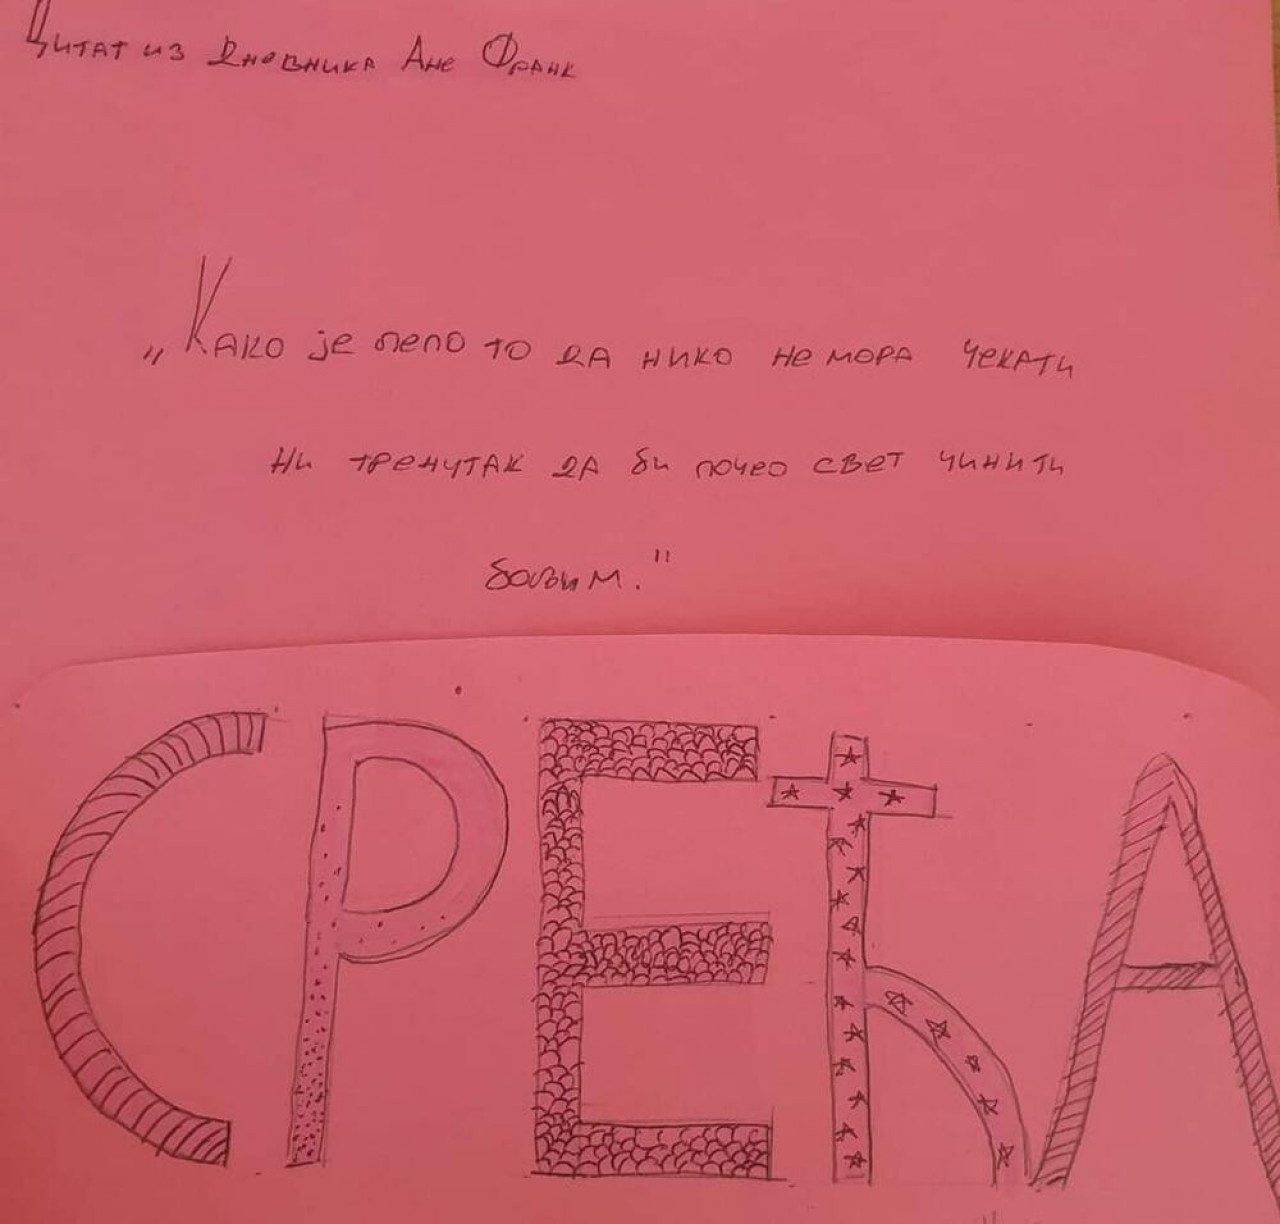 Цитат из Дневника Ане Франк
„Како је лепо то да нико не мора чекати
ни тренутак да би почео свет чинити
бољим."
СРЕЋА